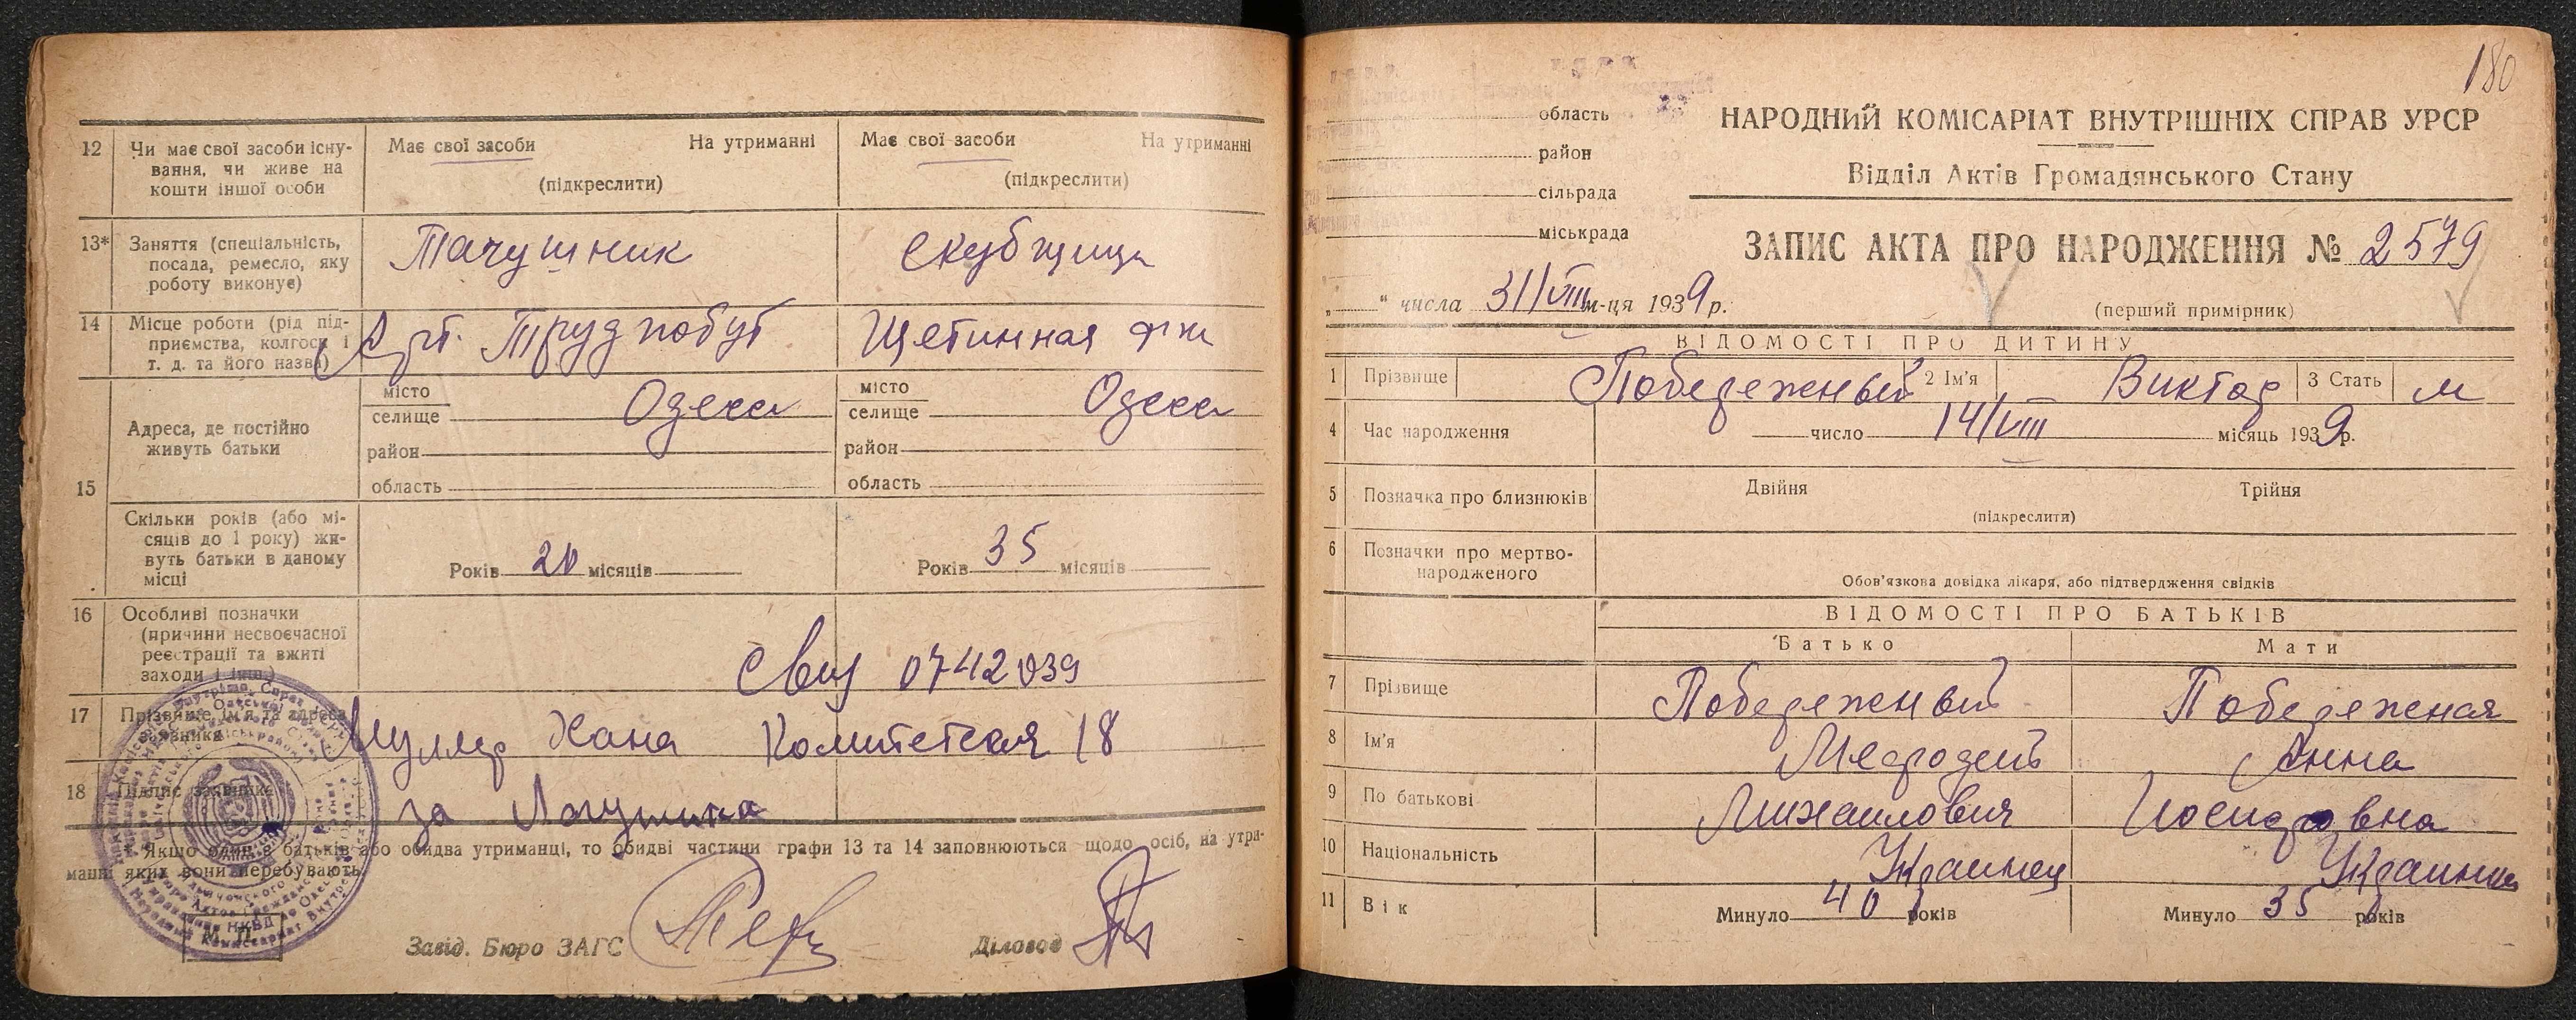 12 Чи має свої засоби існу-
вання, чи живе на
кошти іншої особи
Має свої засоби На утриманні
(підкреслити)
Має свої засоби На утриманні
(підкреслити)
13* Заняття (спеціальність,
посада, ремесло, яку
роботу виконує)
Тачушник
14 Місце роботи (рід під-
приємства, колгосп і
т. д. та його назва)
Арт. Трудпобут
Щетинная
15 Адреса, де постійно
живуть батьки
місто
селище Одеса
район
область
місто
селище Одеса
район
область
Скільки років (або мі-
сяців до 1 року) жи-
вуть батьки в даному
місці
Років 20 місяців
Років 35 місяців
16 Особливі позначки
(причини несвоєчасної
реєстрації та вжиті
заходи і інш.)
0742039
17 Прізвище, ім'я та адреса
заявника
Муляр Хана Комитетская 18
18 Підпис заявника
за
* Якщо один з батьків або обидва утриманці, то обидві частини графи 13 та 14 заповнюються щодо осіб, на утри-
манні яких вони перебувають.
М. П.
Завід. Бюро ЗАГС
Діловод
180
область
район
сільрада
міськрада
НАРОДНИЙ КОМІСАРІАТ ВНУТРІШНІХ СПРАВ УРСР
Відділ Актів Громадянського Стану
ЗАПИС АКТА ПРО НАРОДЖЕННЯ № 2579
„ “ числа 31/VIII м-ця 1939 р.
(перший примірник)
ВІДОМОСТІ ПРО ДИТИНУ
1 Прізвище Побережный 2 Ім'я Виктор 3 Стать м
4 Час народження число 14/VIII місяць 1939 р.
5 Позначка про близнюків Двійня Трійня
(підкреслити)
6 Позначки про мертво-
народженого
Обов'язкова довідка лікаря, або підтвердження свідків
ВІДОМОСТІ ПРО БАТЬКІВ
Батько Мати
7 Прізвище Побережный Побережная
8 Ім'я Мефодий Анна
9 По батькові Михайлович Иосифовна
10 Національність Украинец Украинка
11 Вік Минуло 40 років Минуло 35 років